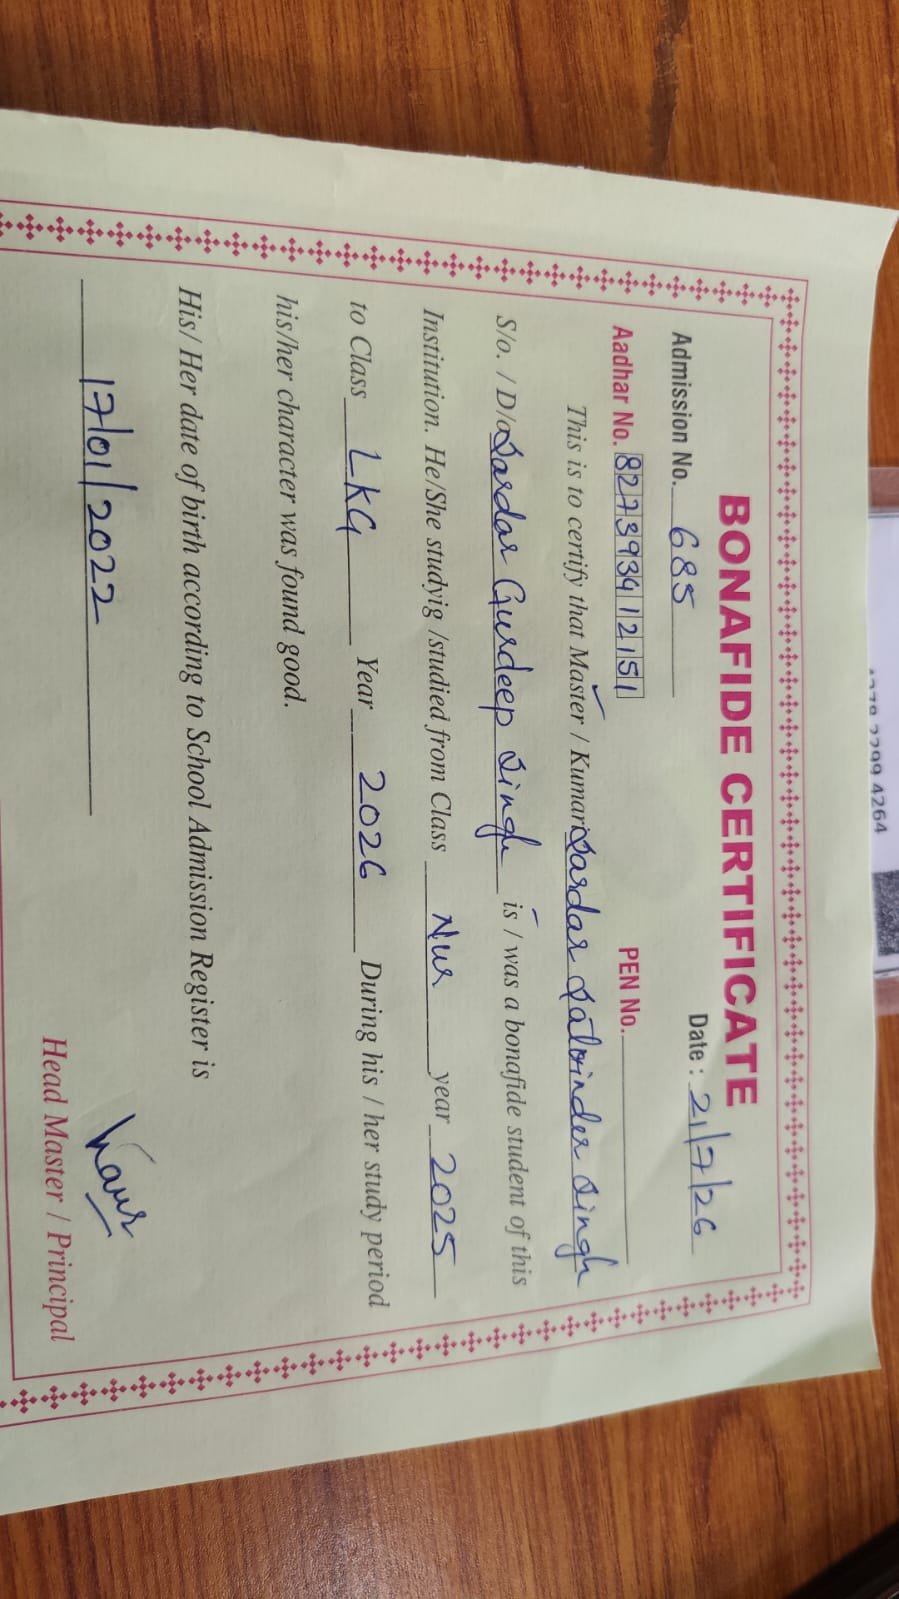 BONAFIDE CERTIFICATE
Admission No. 685 Date : 21/7/26
Aadhar No. 827393412151 PEN No.
This is to certify that Master / Kumari Sardar Satvinder Singh
S/o. / D/o Sardar Gurdeep Singh is / was a bonafide student of this
Institution. He/She studyig /studied from Class Nur year 2025
to Class LKG Year 2026 During his / her study period
his/her character was found good.
His/ Her date of birth according to School Admission Register is
17/01/2022
Kaur
Head Master / Principal
2299 4264